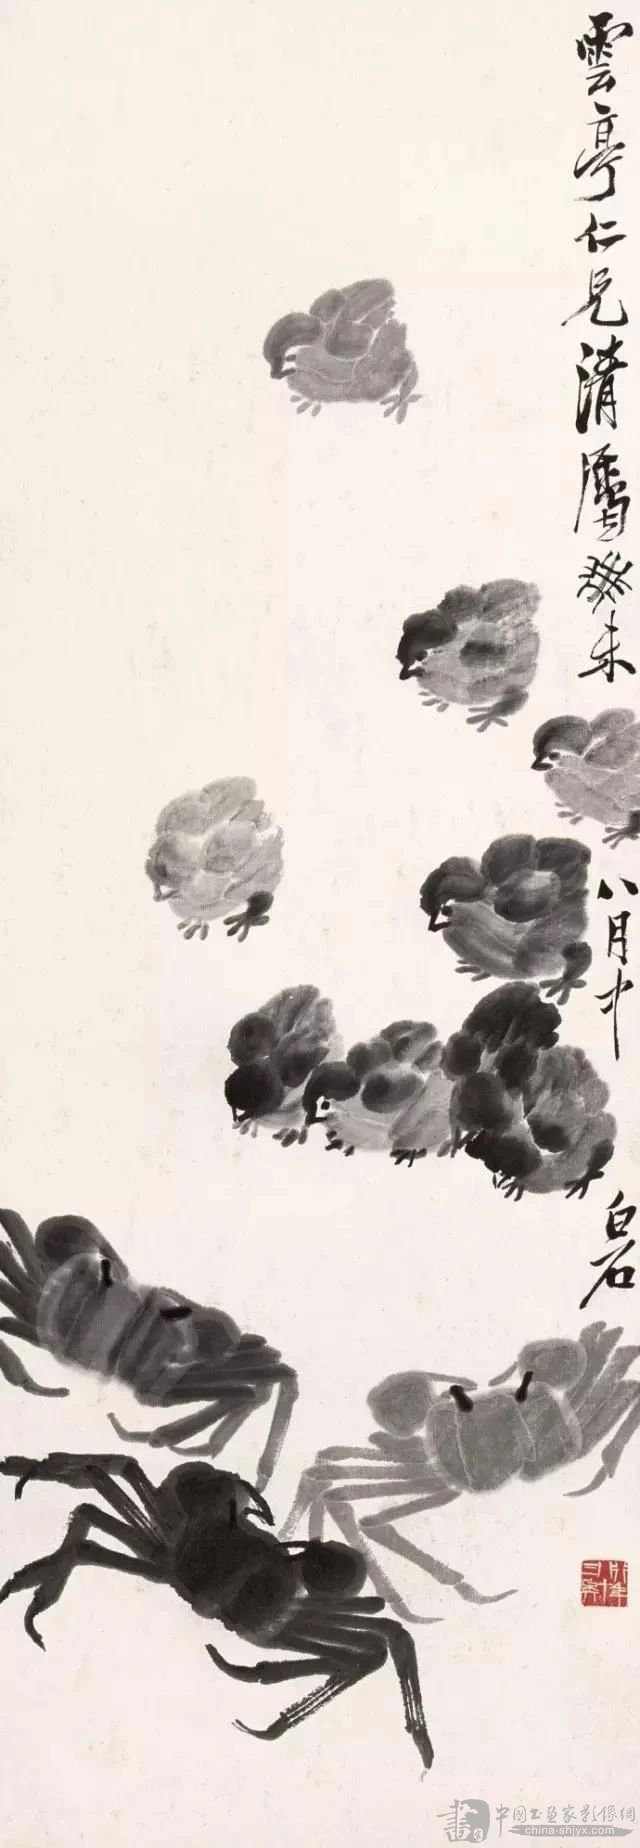 雲亭仁兄清属癸未
八月中
白石
中國书画家影像網
china-shjyx.com